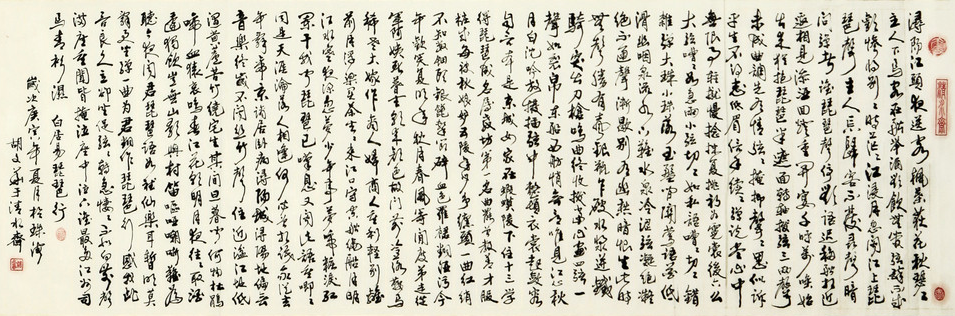 潯陽江頭夜送客楓葉荻花秋瑟瑟
主人下馬客在船舉酒欲飲無管絃醉不成
歡慘將別別時茫茫江浸月忽聞江上琵
琶聲主人忘歸客不發尋聲暗
問彈者誰琵琶聲停欲語遲移船相近
邀相見添酒回燈重開宴千呼萬喚始
出來猶抱琵琶半遮面轉軸撥絃三兩聲
未成曲調先有情絃絃掩抑聲聲思似訴
平生不得志低眉信手續續彈說盡心中
無限事輕攏慢撚抹復挑初為霓裳後六么
大絃嘈嘈如急雨小絃切切如私語嘈嘈切切錯
雜彈大珠小珠落玉盤間關鶯語花底
滑幽咽泉流水下灘水泉冷澀絃凝絕凝
絕不通聲漸歇別有幽愁暗恨生此時
無聲勝有聲銀瓶乍破水漿迸鐵
騎突出刀槍鳴曲終收撥當心畫四絃一
聲如裂帛東船西舫悄無言唯見江心秋
月白沉吟放撥插絃中整頓衣裳起斂容
自言本是京城女家在蝦蟆陵下住十三學
得琵琶成名屬教坊第一部曲罷曾教善才服
妝成每被秋娘妒五陵年少爭纏頭一曲紅綃
不知數鈿頭銀篦擊節碎血色羅裙翻酒污今
年歡笑復明年秋月春風等閒度弟走從
軍阿姨死暮去朝來顏色故門前冷落鞍馬
稀老大嫁作商人婦商人重利輕別離
前月浮梁買茶去去來江口守空船繞船月明
江水寒夜深忽夢少年事夢啼妝淚紅
闌干我聞琵琶已嘆息又聞此語重唧唧
同是天涯淪落人相逢何必曾相識我從去
年辭帝京謫居臥病潯陽城潯陽地僻無
音樂終歲不聞絲竹聲住近湓江地低
濕黃蘆苦竹繞宅生其間旦暮聞何物杜鵑
啼血猿哀鳴春江花朝秋月夜往往取酒
還獨傾豈無山歌與村笛嘔啞嘲哳難為
聽今夜聞君琵琶語如聽仙樂耳暫明莫
辭更坐彈一曲為君翻作琵琶行感我此
言良久立却坐促絃絃轉急淒淒不似向前聲
滿座重聞皆掩泣座中泣下誰最多江州司
馬青衫濕 白居易琵琶行
歲次庚寅年夏月於珠海
胡文于清水齋